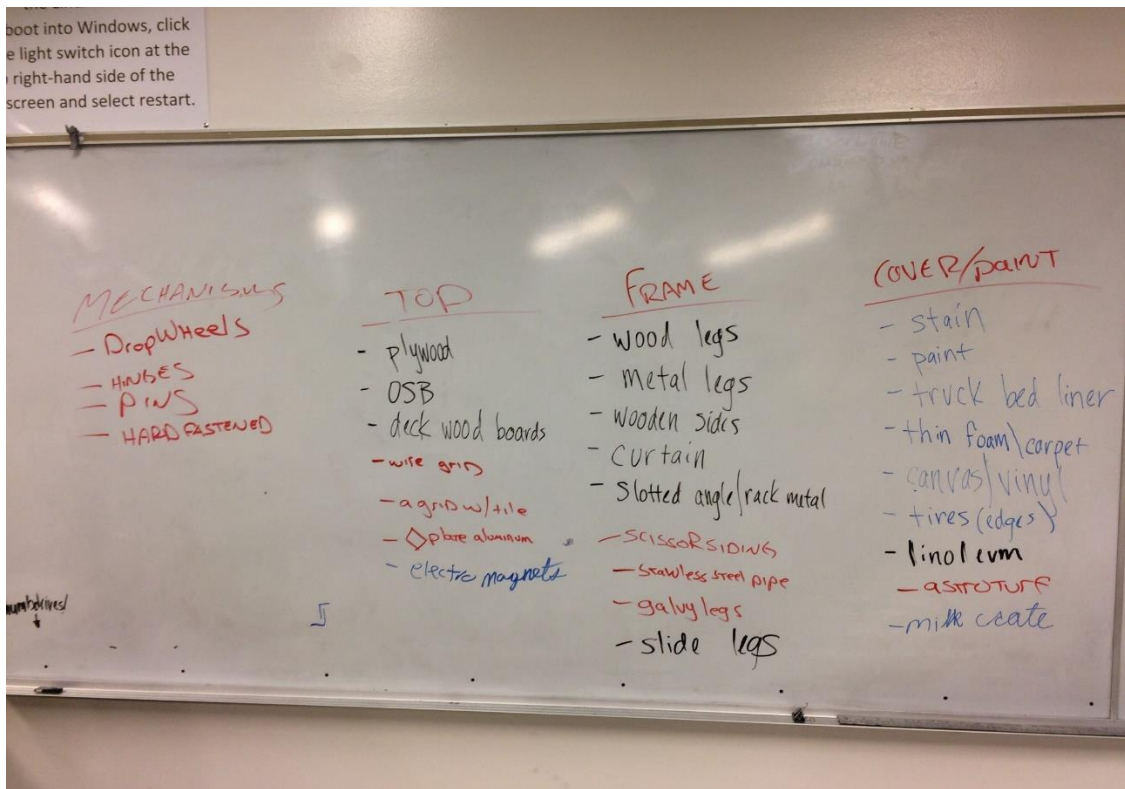 boot into Windows, click
e light switch icon at the
right-hand side of the
screen and select restart.
MECHANISMS
- DropWHeels
- HINGES
- PINS
- HARD FASTENED
TOP
- plywood
- OSB
- deck wood boards
- wire griD
- a griD w/tile
- ◇plate aluminum
- electro magnets
FRAME
- wood legs
- metal legs
- wooden sides
- curtain
- Slotted angle/rack metal
- SCISSOR SIDING
- stainless steel pipe
- galvy legs
- slide legs
COVER/PAINT
- stain
- paint
- truck bed liner
- thin foam\carpet
- canvas/vinyl
- tires (edges)
- linoleum
- ASTROTURF
- milk crate